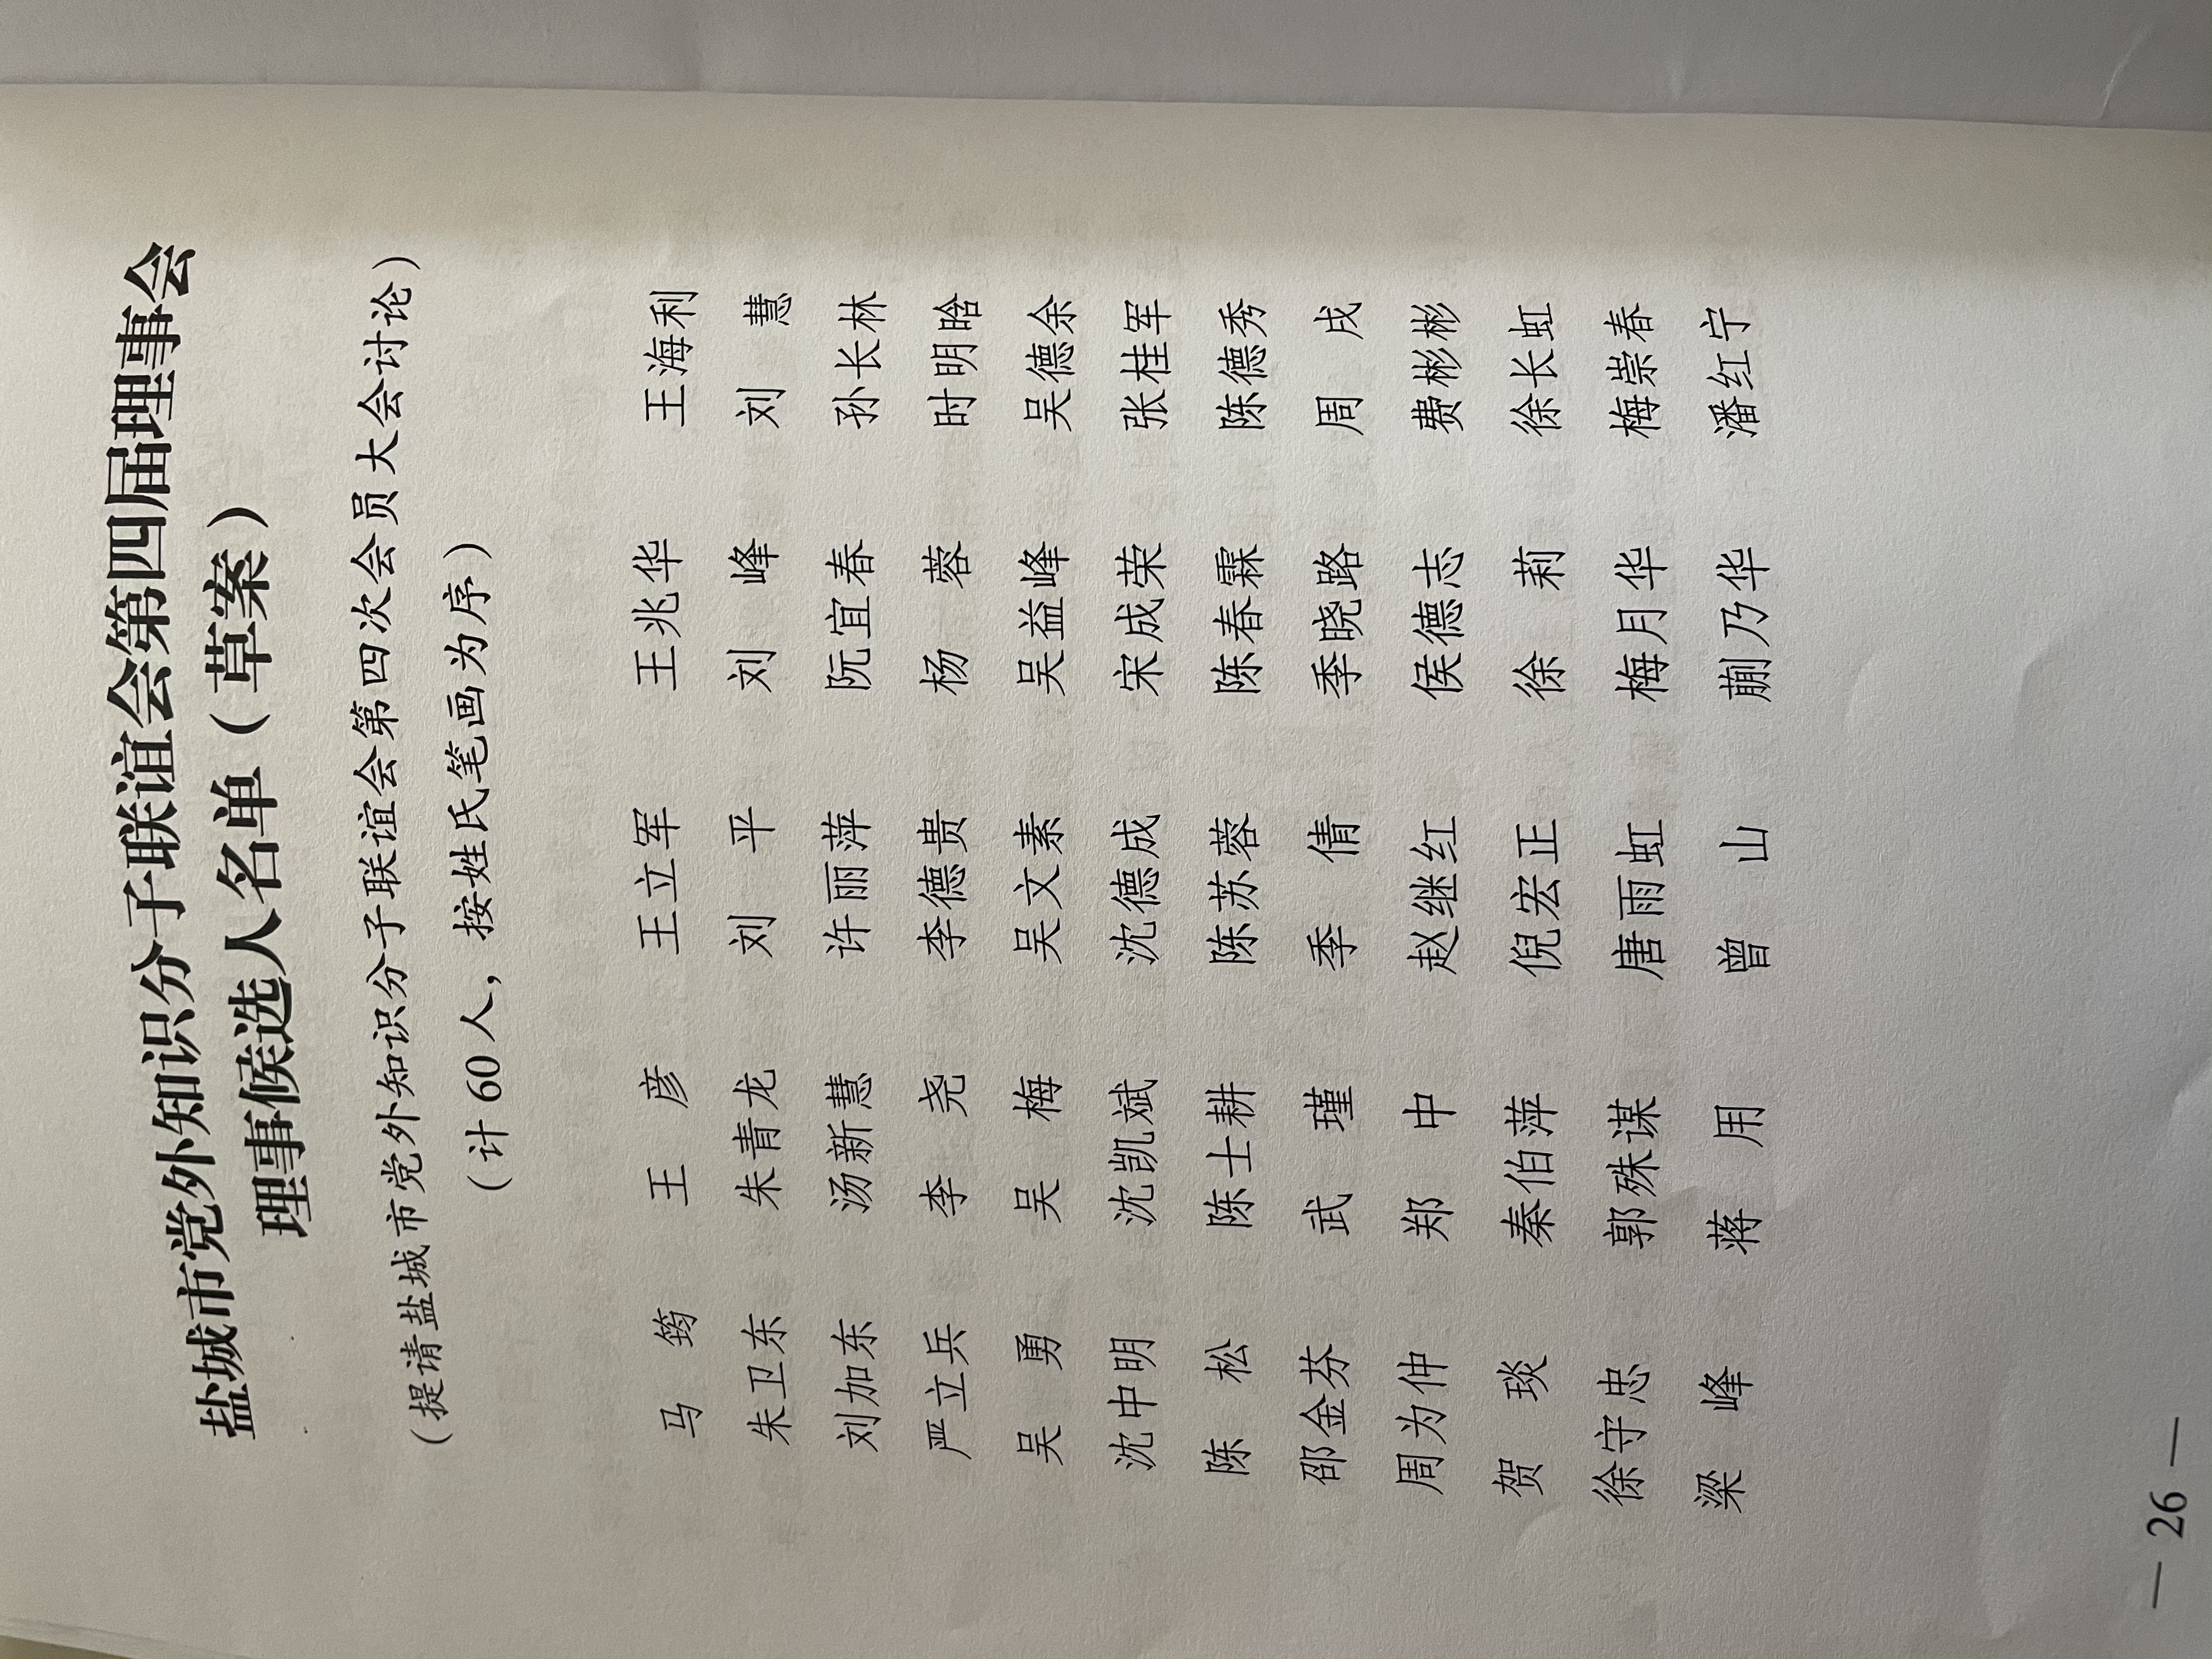 盐城市党外知识分子联谊会第四届理事会
理事候选人名单（草案）
（提请盐城市党外知识分子联谊会第四次会员大会讨论）
（计60人，按姓氏笔画为序）
马　筠　王　彦　王立军　王兆华　王海利
朱卫东　朱青龙　刘　平　刘　峰　刘　慧
刘加东　汤新慧　许丽萍　阮宜春　孙长林
严立兵　李　尧　李德贵　杨　蓉　时明晗
吴　勇　吴　梅　吴文素　吴益峰　吴德余
沈中明　沈凯斌　沈德成　宋成荣　张桂军
陈　松　陈士耕　陈苏蓉　陈春霖　陈德秀
邵金芬　武　瑾　季　倩　季晓路　周　戌
周为仲　郑　中　赵继红　侯德志　费彬彬
贺　琰　秦伯萍　倪宏正　徐　莉　徐长虹
徐守忠　郭殊谋　唐雨虹　梅月华　梅崇春
梁　峰　蒋　用　曾　山　蒯乃华　潘红宁
— 26 —